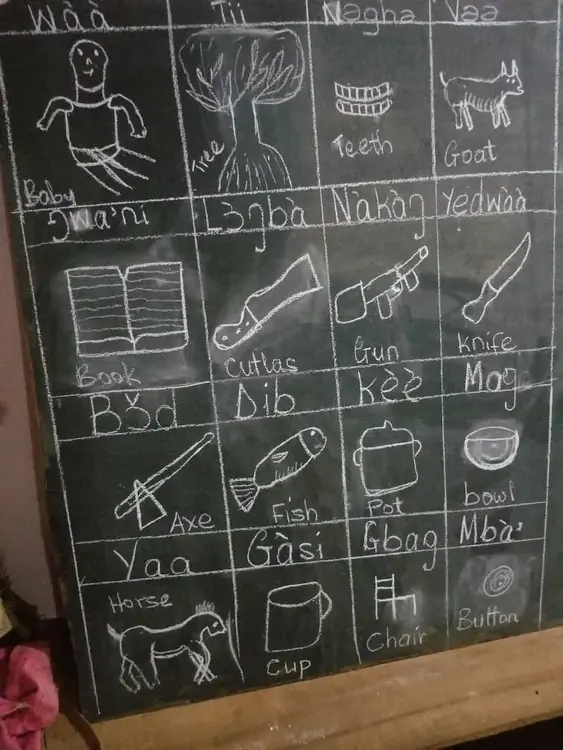 Wàà Tii Nagha Vaa
Baby Tree Teeth Goat
Ŋwa'ni Lɔ̀ŋbà Nàkàŋ Yedwàà
Book Cutlas Gun Knife
Bɔ̌d Dib Kèè Maŋ
Axe Fish Pot bowl
Yaa Gàsi Gbaŋ Mbà'
Horse Cup Chair Button